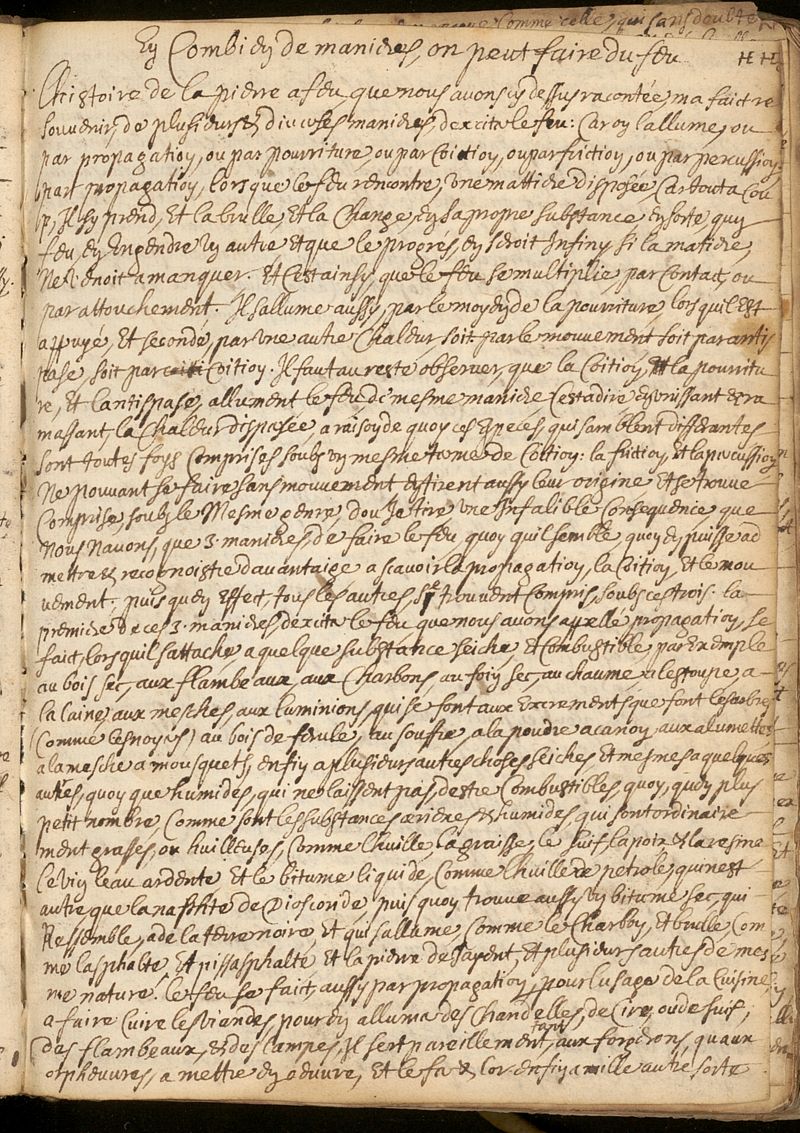 En Combien de manieres, on peut faire du feu HH
L'histoire de la pierre a feu, que nous avons cy dessus racontée, ma faict re
souvenir, de plusieurs & diverses manieres, dexciter le feu: Car on l'allume, ou
par propagation, ou par pourriture, ou par Coition, ou par friction, ou par percussion
par propagation, lors que le feu rencontre, une mattiere disposée, Car tout a Cou
p, Il sy prend, Et la brulle, Et la Change, en sa propre substance En sorte qun
feu, en Engendre un autre Et que le progrés en seroit Infiny si la matiere,
Ne venoit a manquer. Et Cest ainsy, que le feu se multiplie, par Contact, ou
par attouchement. Il sallume aussy, par le moyen de la pourriture, lors quil Est
appuyé, Et secondé, par Une autre Chaleur soit par le mouvement soit par antis
pase soit par Coition. Il faut au reste observer, que la Coition, Et la pourritu
re, Et lantispase, allument le feu de mesme maniere Cestadire en unissant & ra
massant, la Chaleur disposée a raison de quoy ces Especes, qui samblent differantes
sont toutes foys Comprises soubz un mesme terme de Coition: la friction Et la percussion
Ne pouvant se faire sans mouvement en tirent aussy leur origine Et se trouve
Comprise, soubz le Mesme genre, dou Je tire une Infalible Consequence que
Nous Navons, que 3. manieres, de faire le feu quoy quil semble quon en puisse ad
mettre & recognoistre davantaige a scavoir la propagation, la Coition, Et le mou
vement. puis quen Effect, tous les autres, se trouvent Compris, soubs ces trois. la
premiere de ces 3. manieres, dexciter le feu, que nous avons apellé propagation, se
faict, lors quil sattache, a quelque substance seiche, & Combustible, par Exemple
au bois sec, aux flambeaux, aux Charbons, au foin sec, au chaume a lestoupe, a
la laine, aux mesches, aux lumnions, qui se font aux Excrements que font les arbres
(Comme les noyers) au bois de ferule, au souffre, a la poudre a canon, aux alumettes
a la mesche a mousquets, enfin a plusieurs autres choses seiches Et mesmes a quelques
autres, quoy que humides, qui ne laissent pas, destre Combustibles, quoy, quen plus
petit nombre, Comme sont les substances aeriens & humides, qui sont ordinaire
ment grasses, ou huilleuses, Comme lhuille, la graisse, le suif, la poix & la resine
le vin leau ardente Et le bitume liquide, Comme lhuille de petrole, qui nest
autre que la naffte de Dioscoride, puis quon trouve aussy un bitume sec, qui
Ressemble, a de la terre noire, Et qui sallume, Comme le Charbon, Et brulle Com
me lasphalte, Et pissasphalte et la pierre de Jayent, Et plusieurs autres de mes
me nature. le feu se faict, aussy par propagation, pour lusage de la Cuisine,
a faire Cuire les viandes, pour en allumer des Chandelles, de Cire, ou de suif,
des flambeaux, & des lampes, Il sert pareillement, tant aux forgerons, quaux
orpheuvres, a mettre en oeuvre, Et le fer & lor enfin a mille autre sorte